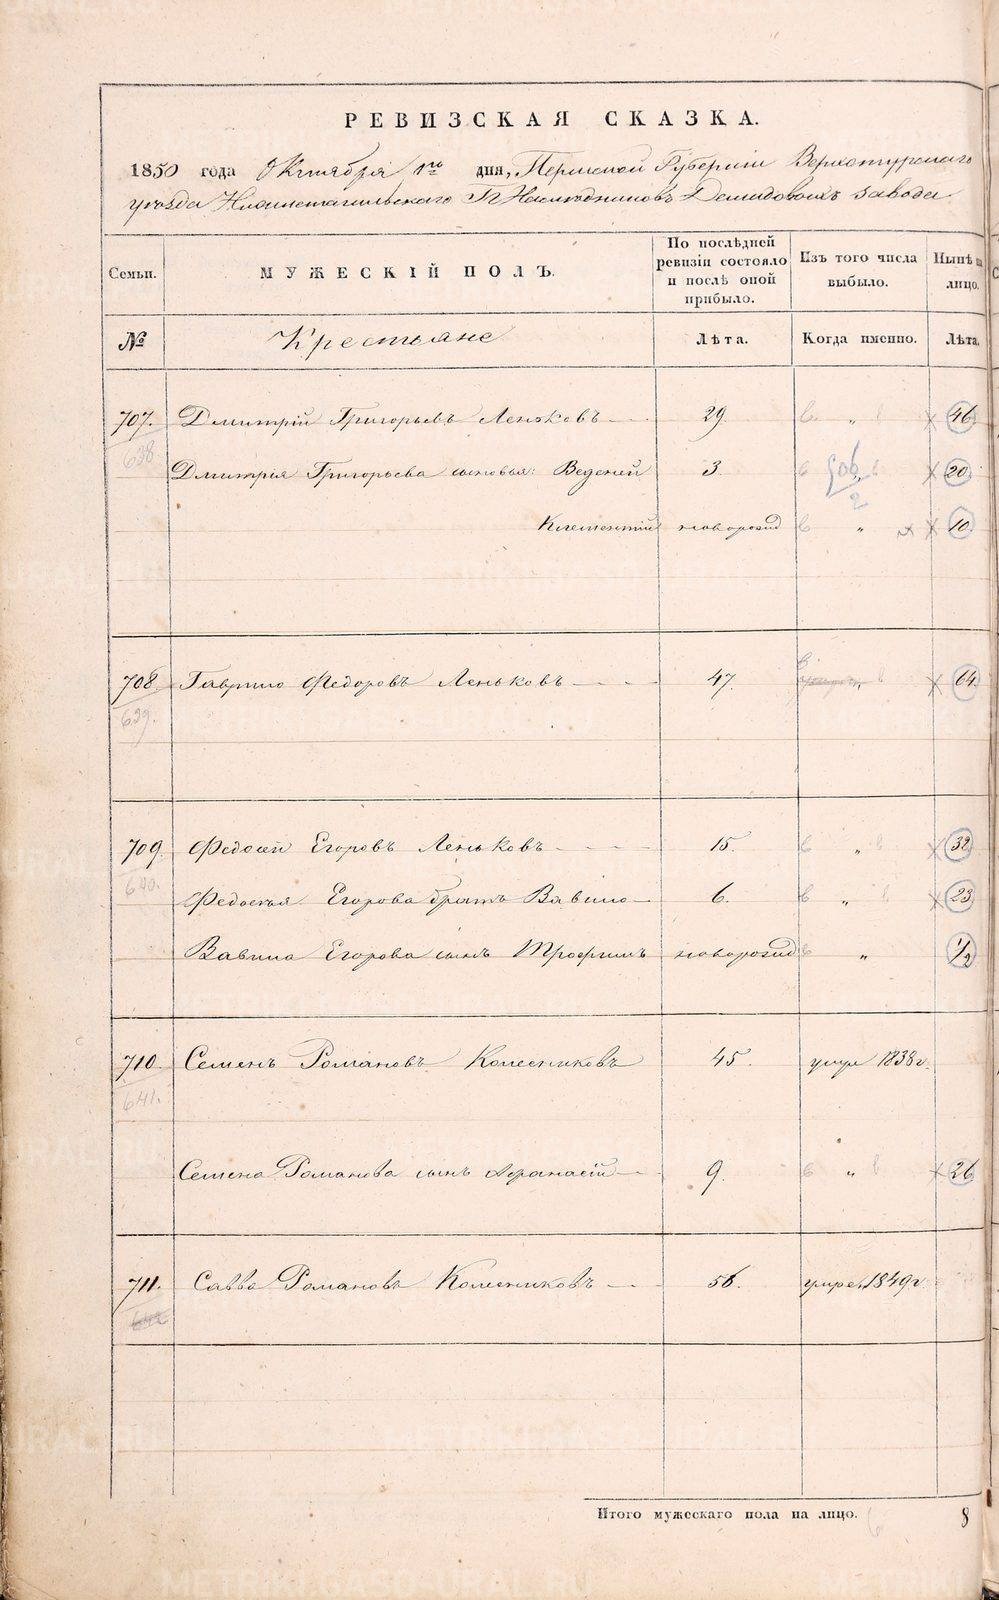 РЕВИЗСКАЯ СКАЗКА.
1850 года Октября 1го дня, Пермской Губернии Верхотурскаго
уезда Нижнетагильскаго Гг Наследниковъ Демидовыхъ завода
Семьи. МУЖЕСКІЙ ПОЛЪ. По послѣдней ревизіи состояло и послѣ оной прибыло. Изъ того числа выбыло. Нынѣ на лицо.
№ Крестьяне Лѣта. Когда именно. Лѣта.
707. Дмитрій Григорьевъ Леньковъ 29. " 46
638
Дмитрія Григорьева сыновья: Веденей 3 " 20
Клементій новорожд " 10
708. Гаврило Федоровъ Леньковъ 47. " 64
639.
709. Федосей Егоровъ Леньковъ 15. " 32
640.
Федосея Егорова братъ Вавило 6. " 23
Вавила Егорова сынъ Трофимъ новорожд " 1/2
710. Семенъ Романовъ Колесниковъ 45. умре 1838г.
641.
Семена Романова сынъ Афанасій 9. " 26
711. Савва Романовъ Колесниковъ 56. умре 1849г
642
Итого мужескаго пола на лицо. 8